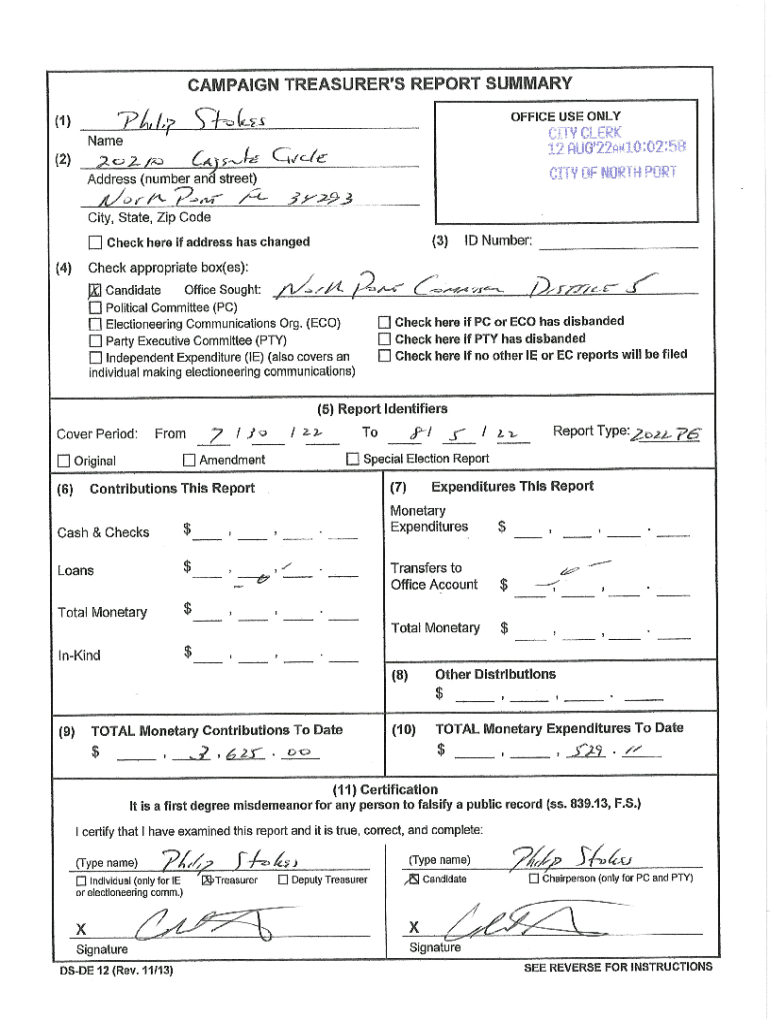 CAMPAIGN TREASURER'S REPORT SUMMARY
(1) Philip Stokes
Name
(2) 20210 Circle
Address (number and street)
North Port FL 34293
City, State, Zip Code
OFFICE USE ONLY
CITY CLERK
12 AUG'22 AM 10:02:58
CITY OF NORTH PORT
Check here if address has changed
(3) ID Number:
(4) Check appropriate box(es):
X Candidate Office Sought: North Port Commission District 5
Political Committee (PC)
Electioneering Communications Org. (ECO)
Party Executive Committee (PTY)
Independent Expenditure (IE) (also covers an
individual making electioneering communications)
Check here if PC or ECO has disbanded
Check here if PTY has disbanded
Check here if no other IE or EC reports will be filed
(5) Report Identifiers
Cover Period: From 7 / 30 / 22 To 8 / 5 / 22 Report Type: 2022 P6
Original Amendment Special Election Report
(6) Contributions This Report
Cash & Checks $ , , .
Loans $ , , .
-0-
Total Monetary $ , , .
In-Kind $ , , .
(7) Expenditures This Report
Monetary
Expenditures $ , , .
Transfers to
Office Account $ , , .
-0-
Total Monetary $ , , .
(8) Other Distributions
$ , , .
(9) TOTAL Monetary Contributions To Date
$ , 3 , 625 . 00
(10) TOTAL Monetary Expenditures To Date
$ , , 529 . 11
(11) Certification
It is a first degree misdemeanor for any person to falsify a public record (ss. 839.13, F.S.)
I certify that I have examined this report and it is true, correct, and complete:
(Type name) Philip Stokes
Individual (only for IE X Treasurer Deputy Treasurer
or electioneering comm.)
X
Signature
(Type name) Philip Stokes
X Candidate Chairperson (only for PC and PTY)
X
Signature
DS-DE 12 (Rev. 11/13)
SEE REVERSE FOR INSTRUCTIONS